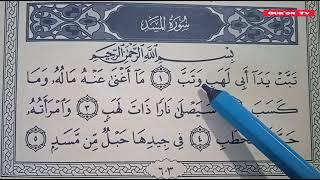 Qur'on Tv
سُورَةُ المَسَدِ
بِسْمِ اللَّهِ الرَّحْمَٰنِ الرَّحِيمِ
تَبَّتْ يَدَا أَبِي لَهَبٍ وَتَبَّ ١ مَا أَغْنَىٰ عَنْهُ مَالُهُ وَمَا
كَسَبَ سَيَصْلَىٰ نَارًا ذَاتَ لَهَبٍ ٣ وَامْرَأَتُهُ
الْحَطَبِ ٤ فِي جِيدِهَا حَبْلٌ مِّن مَّسَدٍ ٥
٦٠٣